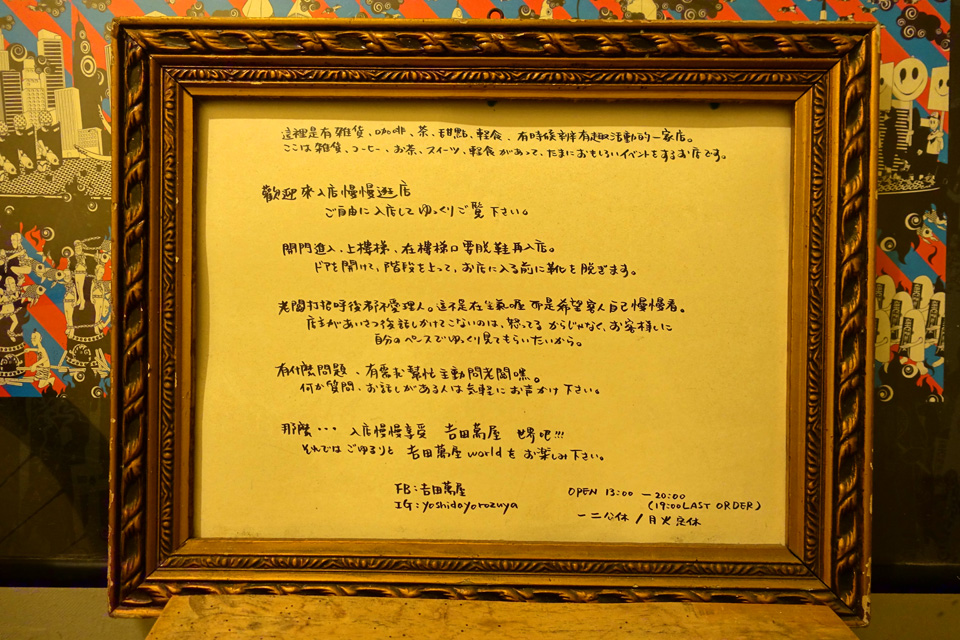 這裡是有雜貨、咖啡、茶、甜點、輕食、有時候舉辦有趣活動的一家店。
ここは雑貨、コーヒー、お茶、スイーツ、軽食があって、たまにおもしろいイベントをするお店です。
歡迎來入店慢慢逛店
ご自由に入店してゆっくりご覧下さい。
開門進入、上樓樣、在樓樣口要脫鞋再入店。
ドアを開けて、階段を上って、お店に入る前に靴を脱ぎます。
老闆打招呼後都不愛理人。這不是在生氣喔 而是希望客人自己慢慢看。
店主があいさつ後話しかけてこないのは、怒ってるからじゃなく、お客様しに
自分のペースでゆっくり見てもらいたいから。
有什麼問題、有需求幫忙主動問老闆嘿。
何か質問、お話しがある人は気軽にお声かけ下さい。
那麼・・・ 入店慢慢享受 吉田萬屋 世界吧!!!
それではごゆるりと 吉田萬屋worldをお楽しみ下さい。
FB:吉田萬屋
IG:yoshidayorozuya
OPEN 13:00 ー20:00
(19:00LAST ORDER)
一二公休/月火定休